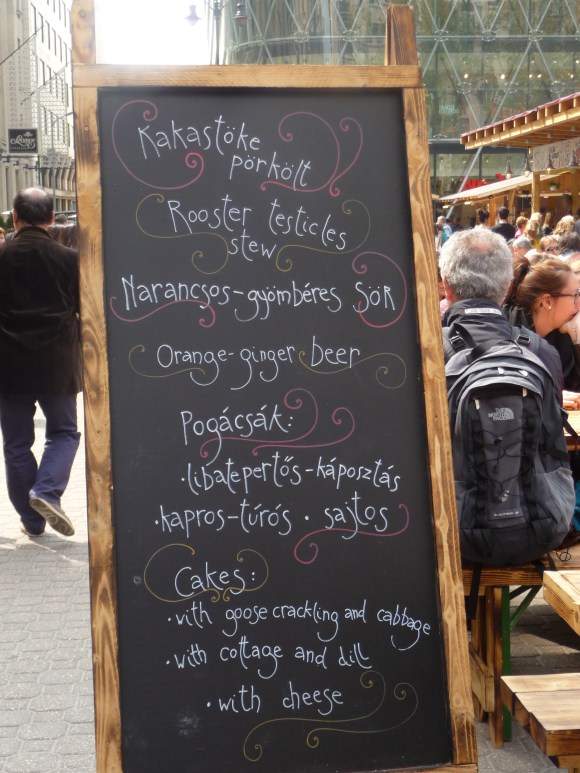 Kakastöke
pörkölt
Rooster testicles
stew
Narancsos-gyömbéres SÖR
Orange-ginger beer
Pogácsák:
·libatepertős-káposztás
·kapros-túrós · sajtos
Cakes:
·with goose crackling and cabbage
·with cottage and dill
·with cheese
THE NORTH FACE